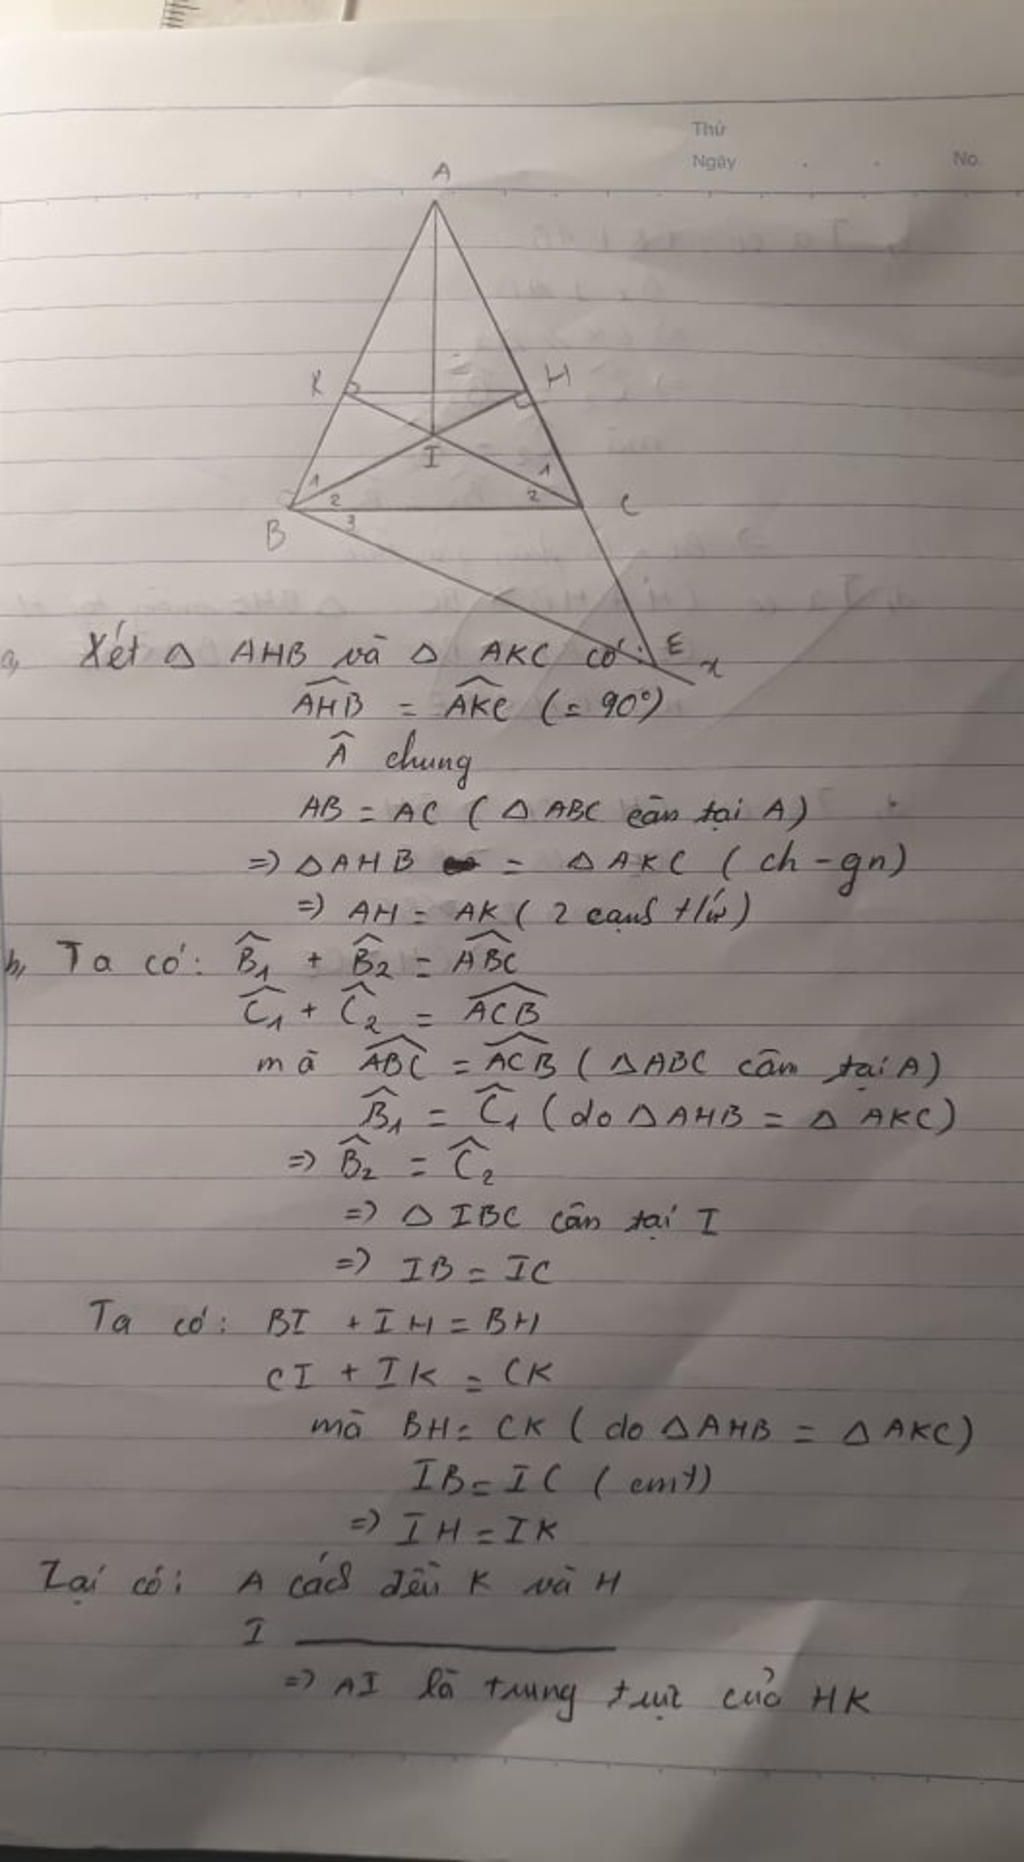 Thứ
Ngày . . No.
A
K H
I
1 1
2 2
B 3 C
E
x
a, Xét △ AHB và △ AKC có:
\widehat{AHB} = \widehat{AKC} (= 90°)
\widehat{A} chung
AB = AC ( △ ABC cân tại A)
=> △ AHB = △ AKC ( ch - gn)
=> AH = AK ( 2 cạnh t/ứ)
b, Ta có: \widehat{B}₁ + \widehat{B}₂ = \widehat{ABC}
\widehat{C}₁ + \widehat{C}₂ = \widehat{ACB}
mà \widehat{ABC} = \widehat{ACB} ( △ABC cân tại A)
\widehat{B}₁ = \widehat{C}₁ (do △ AHB = △ AKC)
=> \widehat{B}₂ = \widehat{C}₂
=> △ IBC cân tại I
=> IB = IC
Ta có: BI + IH = BH
CI + IK = CK
mà BH = CK ( do △AHB = △ AKC)
IB = IC ( cmt)
=> IH = IK
Lại có: A cách đều K và H
I
=> AI là trung trực của HK